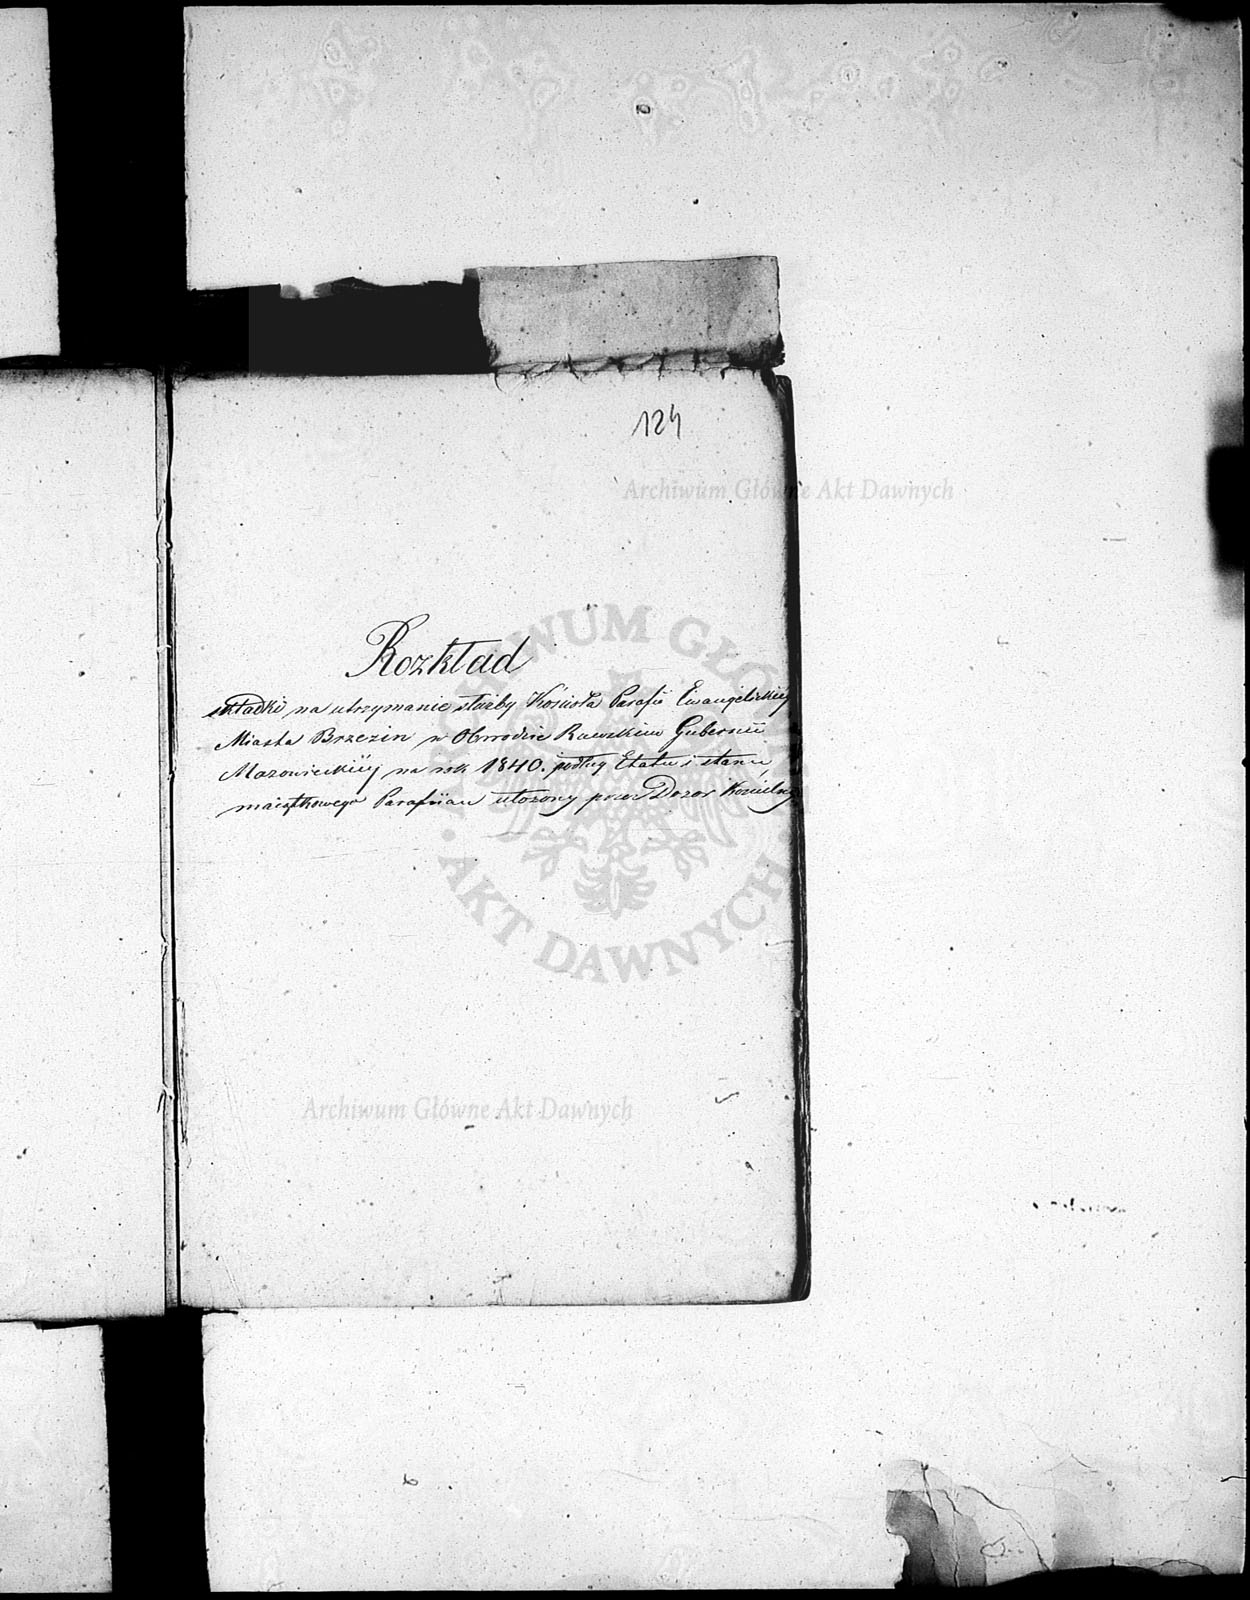 124
Archiwum Główne Akt Dawnych
Rozkład
składki na utrzymanie służby Kościoła Parafii Ewangelickiéj
Miasta Brzezin w Obwodzie Rawskim Gubernii
Mazowieckiéj na rok 1840. podług Etatu i stanu
maiątkowego Parafiian ułożony przez Dozor Kościelny
ARCHIWUM GŁÓWNE
AKT DAWNYCH
Archiwum Główne Akt Dawnych